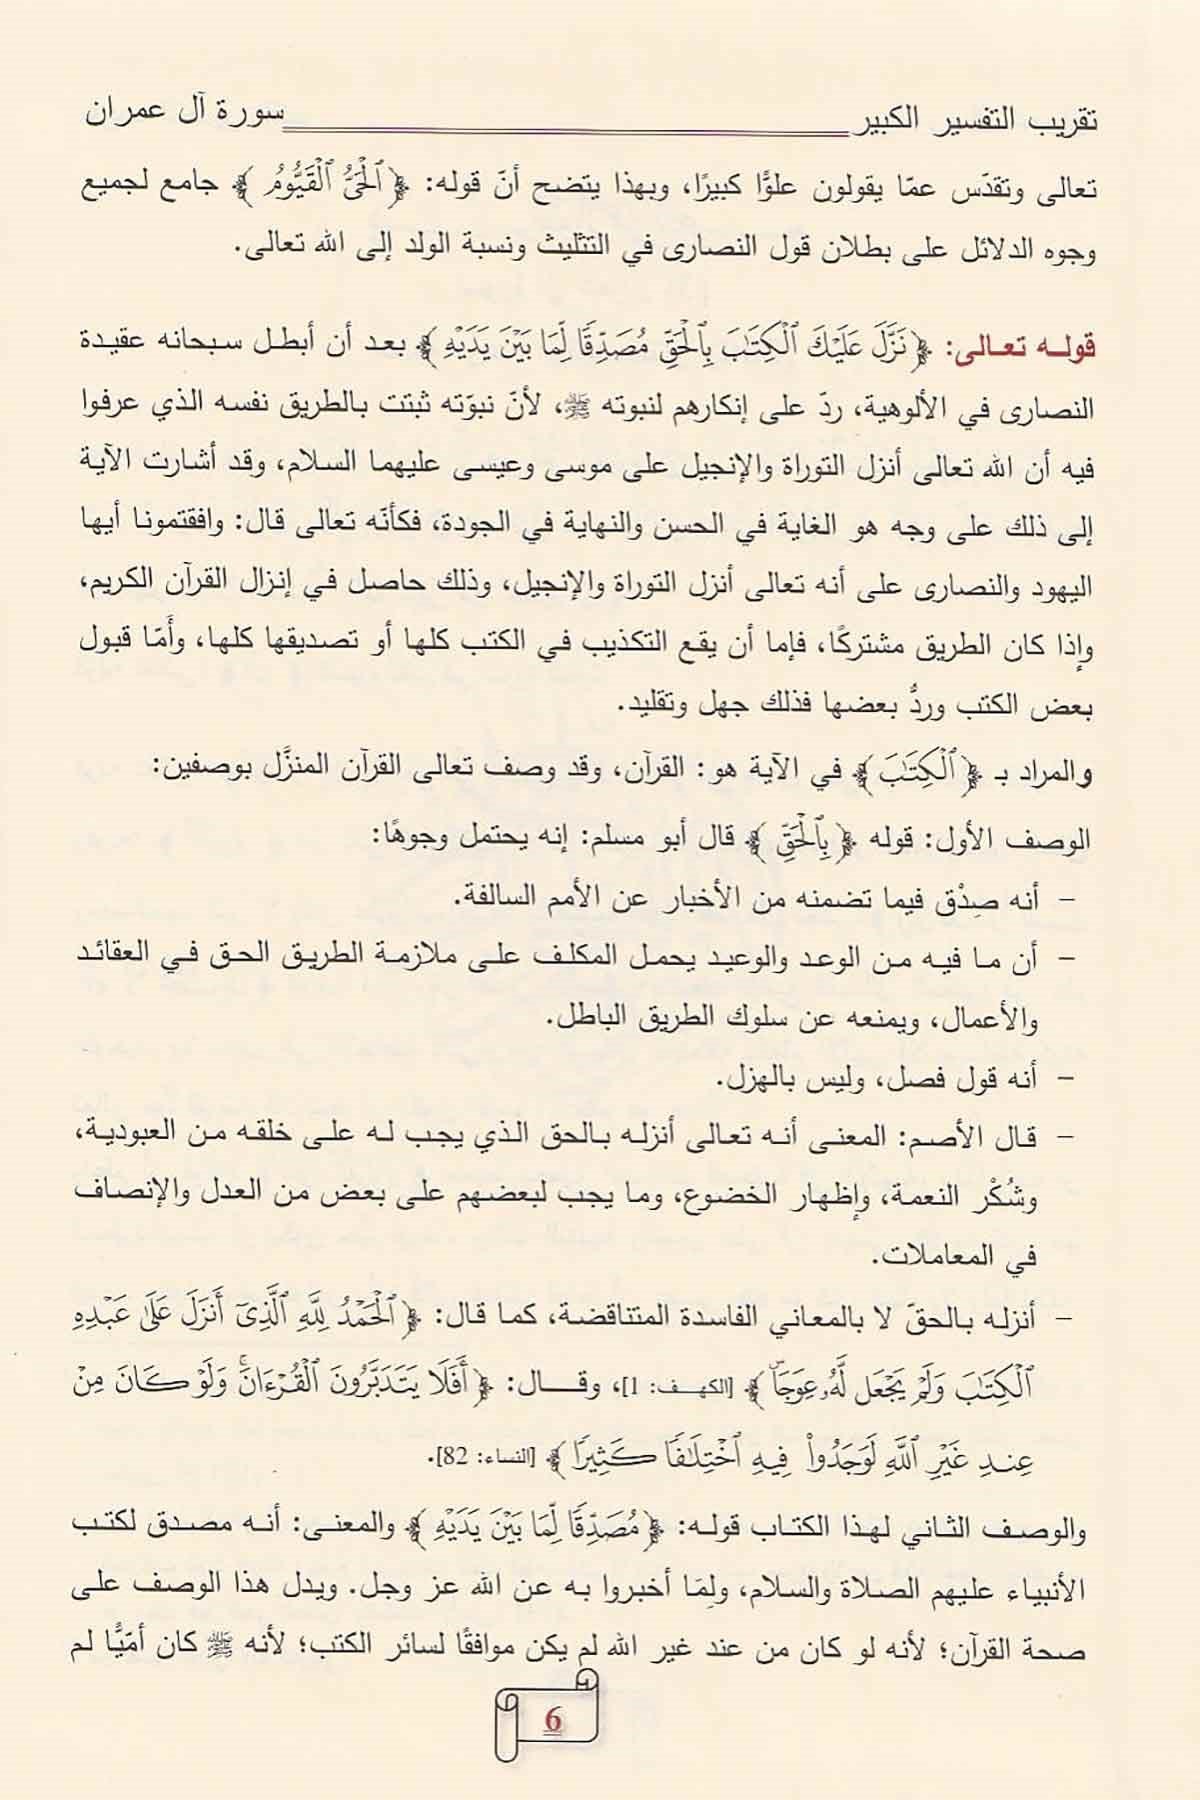 تقريب التفسير الكبير سورة آل عمران
تعالى وتقدّس عمّا يقولون علوًّا كبيرًا، وبهذا يتضح أنّ قوله: ﴿ ٱلۡحَيُّ ٱلۡقَيُّومُ ﴾ جامع لجميع
وجوه الدلائل على بطلان قول النصارى في التثليث ونسبة الولد إلى الله تعالى.
قوله تعالى: ﴿نَزَّلَ عَلَيۡكَ ٱلۡكِتَٰبَ بِٱلۡحَقِّ مُصَدِّقٗا لِّمَا بَيۡنَ يَدَيۡهِ ﴾ بعد أن أبطل سبحانه عقيدة
النصارى في الألوهية، ردّ على إنكارهم لنبوته ﷺ، لأنّ نبوّته ثبتت بالطريق نفسه الذي عرفوا
فيه أن الله تعالى أنزل التوراة والإنجيل على موسى وعيسى عليهما السلام، وقد أشارت الآية
إلى ذلك على وجه هو الغاية في الحسن والنهاية في الجودة، فكأنّه تعالى قال: وافقتمونا أيها
اليهود والنصارى على أنه تعالى أنزل التوراة والإنجيل، وذلك حاصل في إنزال القرآن الكريم،
وإذا كان الطريق مشتركًا، فإما أن يقع التكذيب في الكتب كلها أو تصديقها كلها، وأَمّا قبول
بعض الكتب وردُّ بعضها فذلك جهل وتقليد.
والمراد بـ ﴿ ٱلۡكِتَٰبَ ﴾ في الآية هو: القرآن، وقد وصف تعالى القرآن المنزَّل بوصفين:
الوصف الأول: قوله ﴿ بِٱلۡحَقِّ ﴾ قال أبو مسلم: إنه يحتمل وجوهًا:
– أنه صِدْق فيما تضمنه من الأخبار عن الأمم السالفة.
– أن ما فيه من الوعد والوعيد يحمل المكلف على ملازمة الطريق الحق في العقائد
والأعمال، ويمنعه عن سلوك الطريق الباطل.
– أنه قول فصل، وليس بالهزل.
– قال الأصم: المعنى أنه تعالى أنزله بالحق الذي يجب له على خلقه من العبودية،
وشُكْر النعمة، وإظهار الخضوع، وما يجب لبعضهم على بعض من العدل والإنصاف
في المعاملات.
– أنزله بالحقّ لا بالمعاني الفاسدة المتناقضة، كما قال: ﴿ ٱلۡحَمۡدُ لِلَّهِ ٱلَّذِيٓ أَنزَلَ عَلَىٰ عَبۡدِهِ
ٱلۡكِتَٰبَ وَلَمۡ يَجۡعَل لَّهُۥ عِوَجَاۜ ﴾ [الكهف: 1]، وقال: ﴿ أَفَلَا يَتَدَبَّرُونَ ٱلۡقُرۡءَانَۚ وَلَوۡ كَانَ مِنۡ
عِندِ غَيۡرِ ٱللَّهِ لَوَجَدُواْ فِيهِ ٱخۡتِلَٰفٗا كَثِيرٗا ﴾ [النساء: 82].
والوصف الثاني لهذا الكتاب قوله: ﴿ مُصَدِّقٗا لِّمَا بَيۡنَ يَدَيۡهِ ﴾ والمعنى: أنه مصدق لكتب
الأنبياء عليهم الصلاة والسلام، ولِمَا أخبروا به عن الله عز وجل. ويدل هذا الوصف على
صحة القرآن؛ لأنه لو كان من عند غير الله لم يكن موافقًا لسائر الكتب؛ لأنه ﷺ كان أمّيًّا لم
6